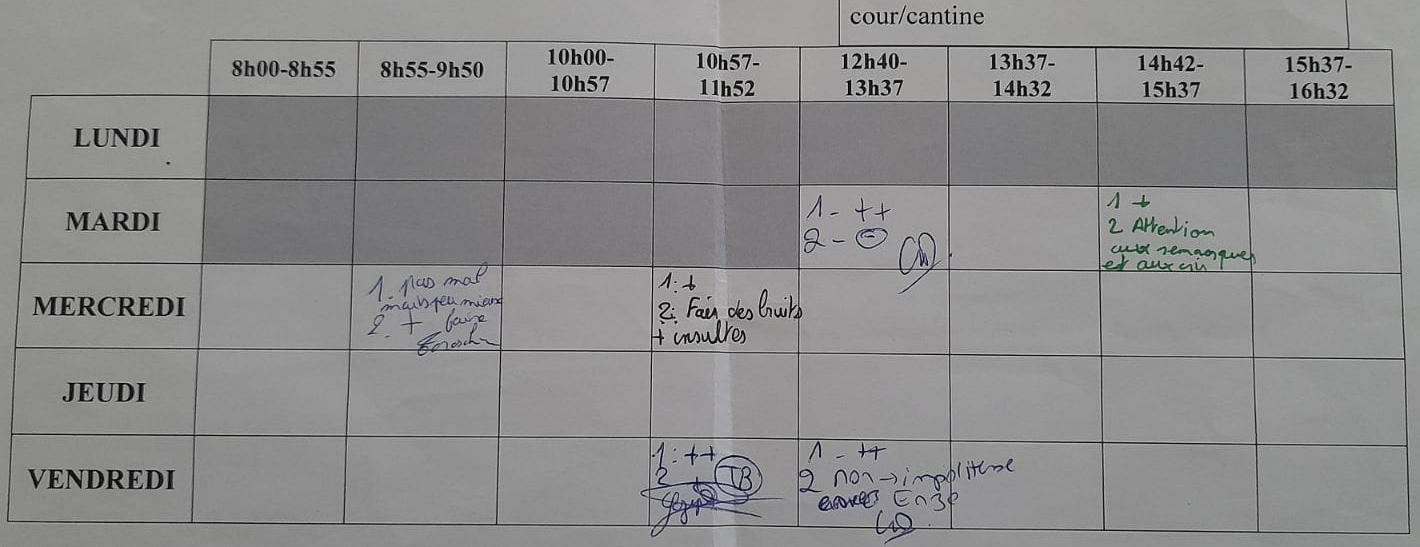 cour/cantine
8h00-8h55
8h55-9h50
10h00-
10h57
10h57-
11h52
12h40-
13h37
13h37-
14h32
14h42-
15h37
15h37-
16h32
LUNDI
MARDI
1- ++
2-
1 +
2 Attention
aux remarques
et aux cris
MERCREDI
1. pas mal
mais peu mieux
2. + faire
1: +
2: Fais des bruits
+ insultes
JEUDI
VENDREDI
1: ++
2 TB
1 - ++
2 non → impolitesse
envers Enzo